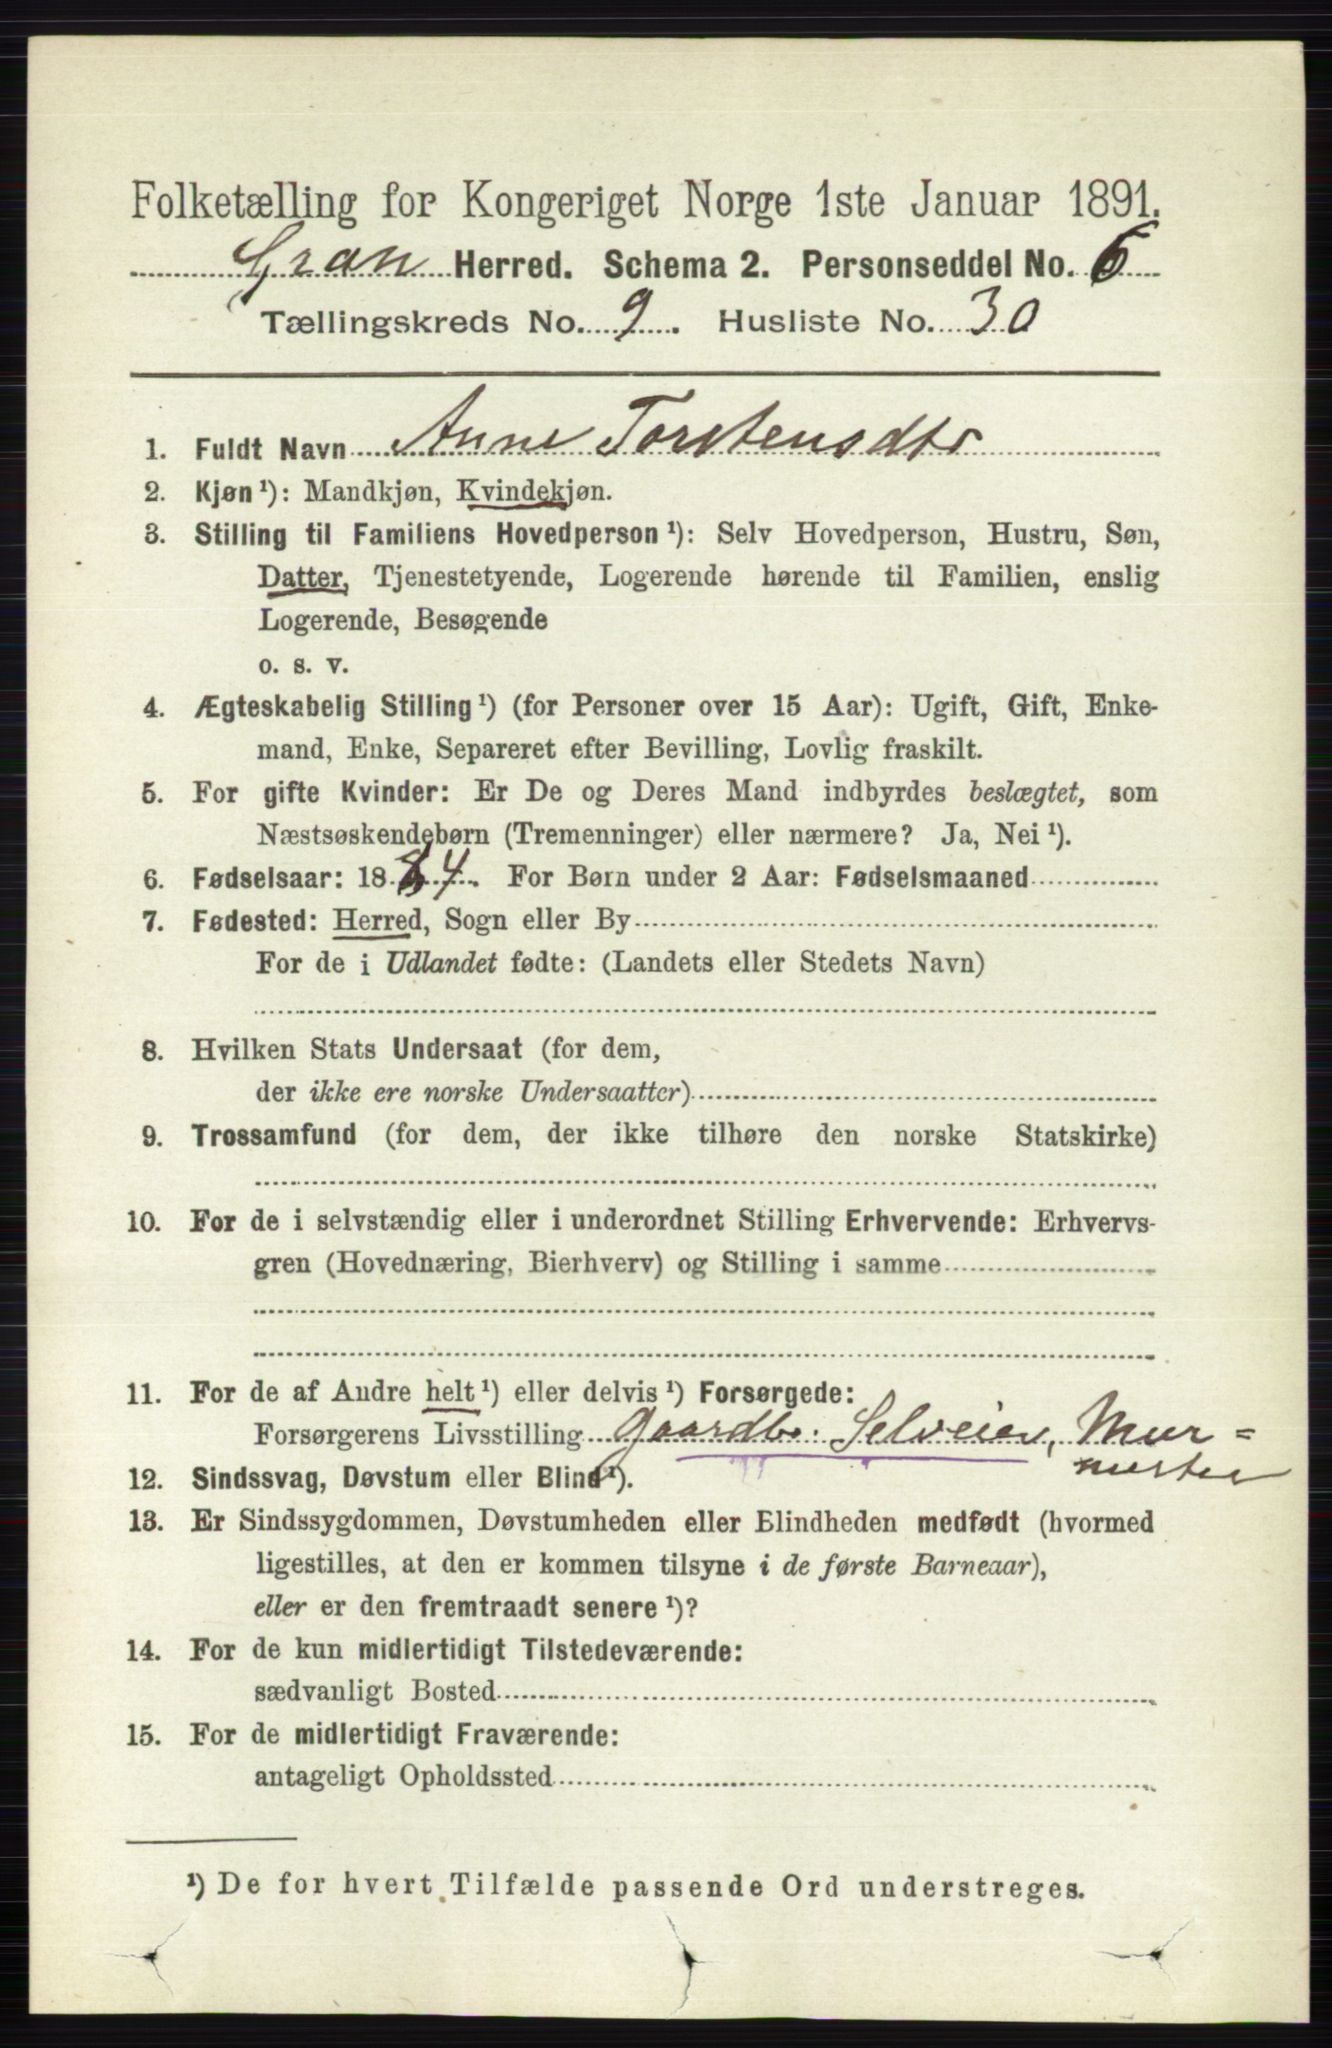 Folketælling for Kongeriget Norge 1ste Januar 1891.
Gran Herred. Schema 2. Personseddel No. 6
Tællingskreds No. 9. Husliste No. 30
1. Fuldt Navn Anne Torstensdtr
2. Kjøn¹): Mandkjøn, Kvindekjøn.
3. Stilling til Familiens Hovedperson¹): Selv Hovedperson, Hustru, Søn,
Datter, Tjenestetyende, Logerende hørende til Familien, enslig
Logerende, Besøgende
o. s. v.
4. Ægteskabelig Stilling¹) (for Personer over 15 Aar): Ugift, Gift, Enke-
mand, Enke, Separeret efter Bevilling, Lovlig fraskilt.
5. For gifte Kvinder: Er De og Deres Mand indbyrdes beslægtet, som
Næstsøskendebørn (Tremenninger) eller nærmere? Ja, Nei¹).
6. Fødselsaar: 1884. For Børn under 2 Aar: Fødselsmaaned
7. Fødested: Herred, Sogn eller By
For de i Udlandet fødte: (Landets eller Stedets Navn)
8. Hvilken Stats Undersaat (for dem,
der ikke ere norske Undersaatter)
9. Trossamfund (for dem, der ikke tilhøre den norske Statskirke)
10. For de i selvstændig eller i underordnet Stilling Erhvervende: Erhvervs-
gren (Hovednæring, Bierhverv) og Stilling i samme
11. For de af Andre helt¹) eller delvis¹) Forsørgede:
Forsørgerens Livsstilling Gaardbr. Selveier, Mur=
mester
12. Sindssvag, Døvstum eller Blind¹).
13. Er Sindssygdommen, Døvstumheden eller Blindheden medfødt (hvormed
ligestilles, at den er kommen tilsyne i de første Barneaar),
eller er den fremtraadt senere¹)?
14. For de kun midlertidigt Tilstedeværende:
sædvanligt Bosted
15. For de midlertidigt Fraværende:
antageligt Opholdssted
¹) De for hvert Tilfælde passende Ord understreges.